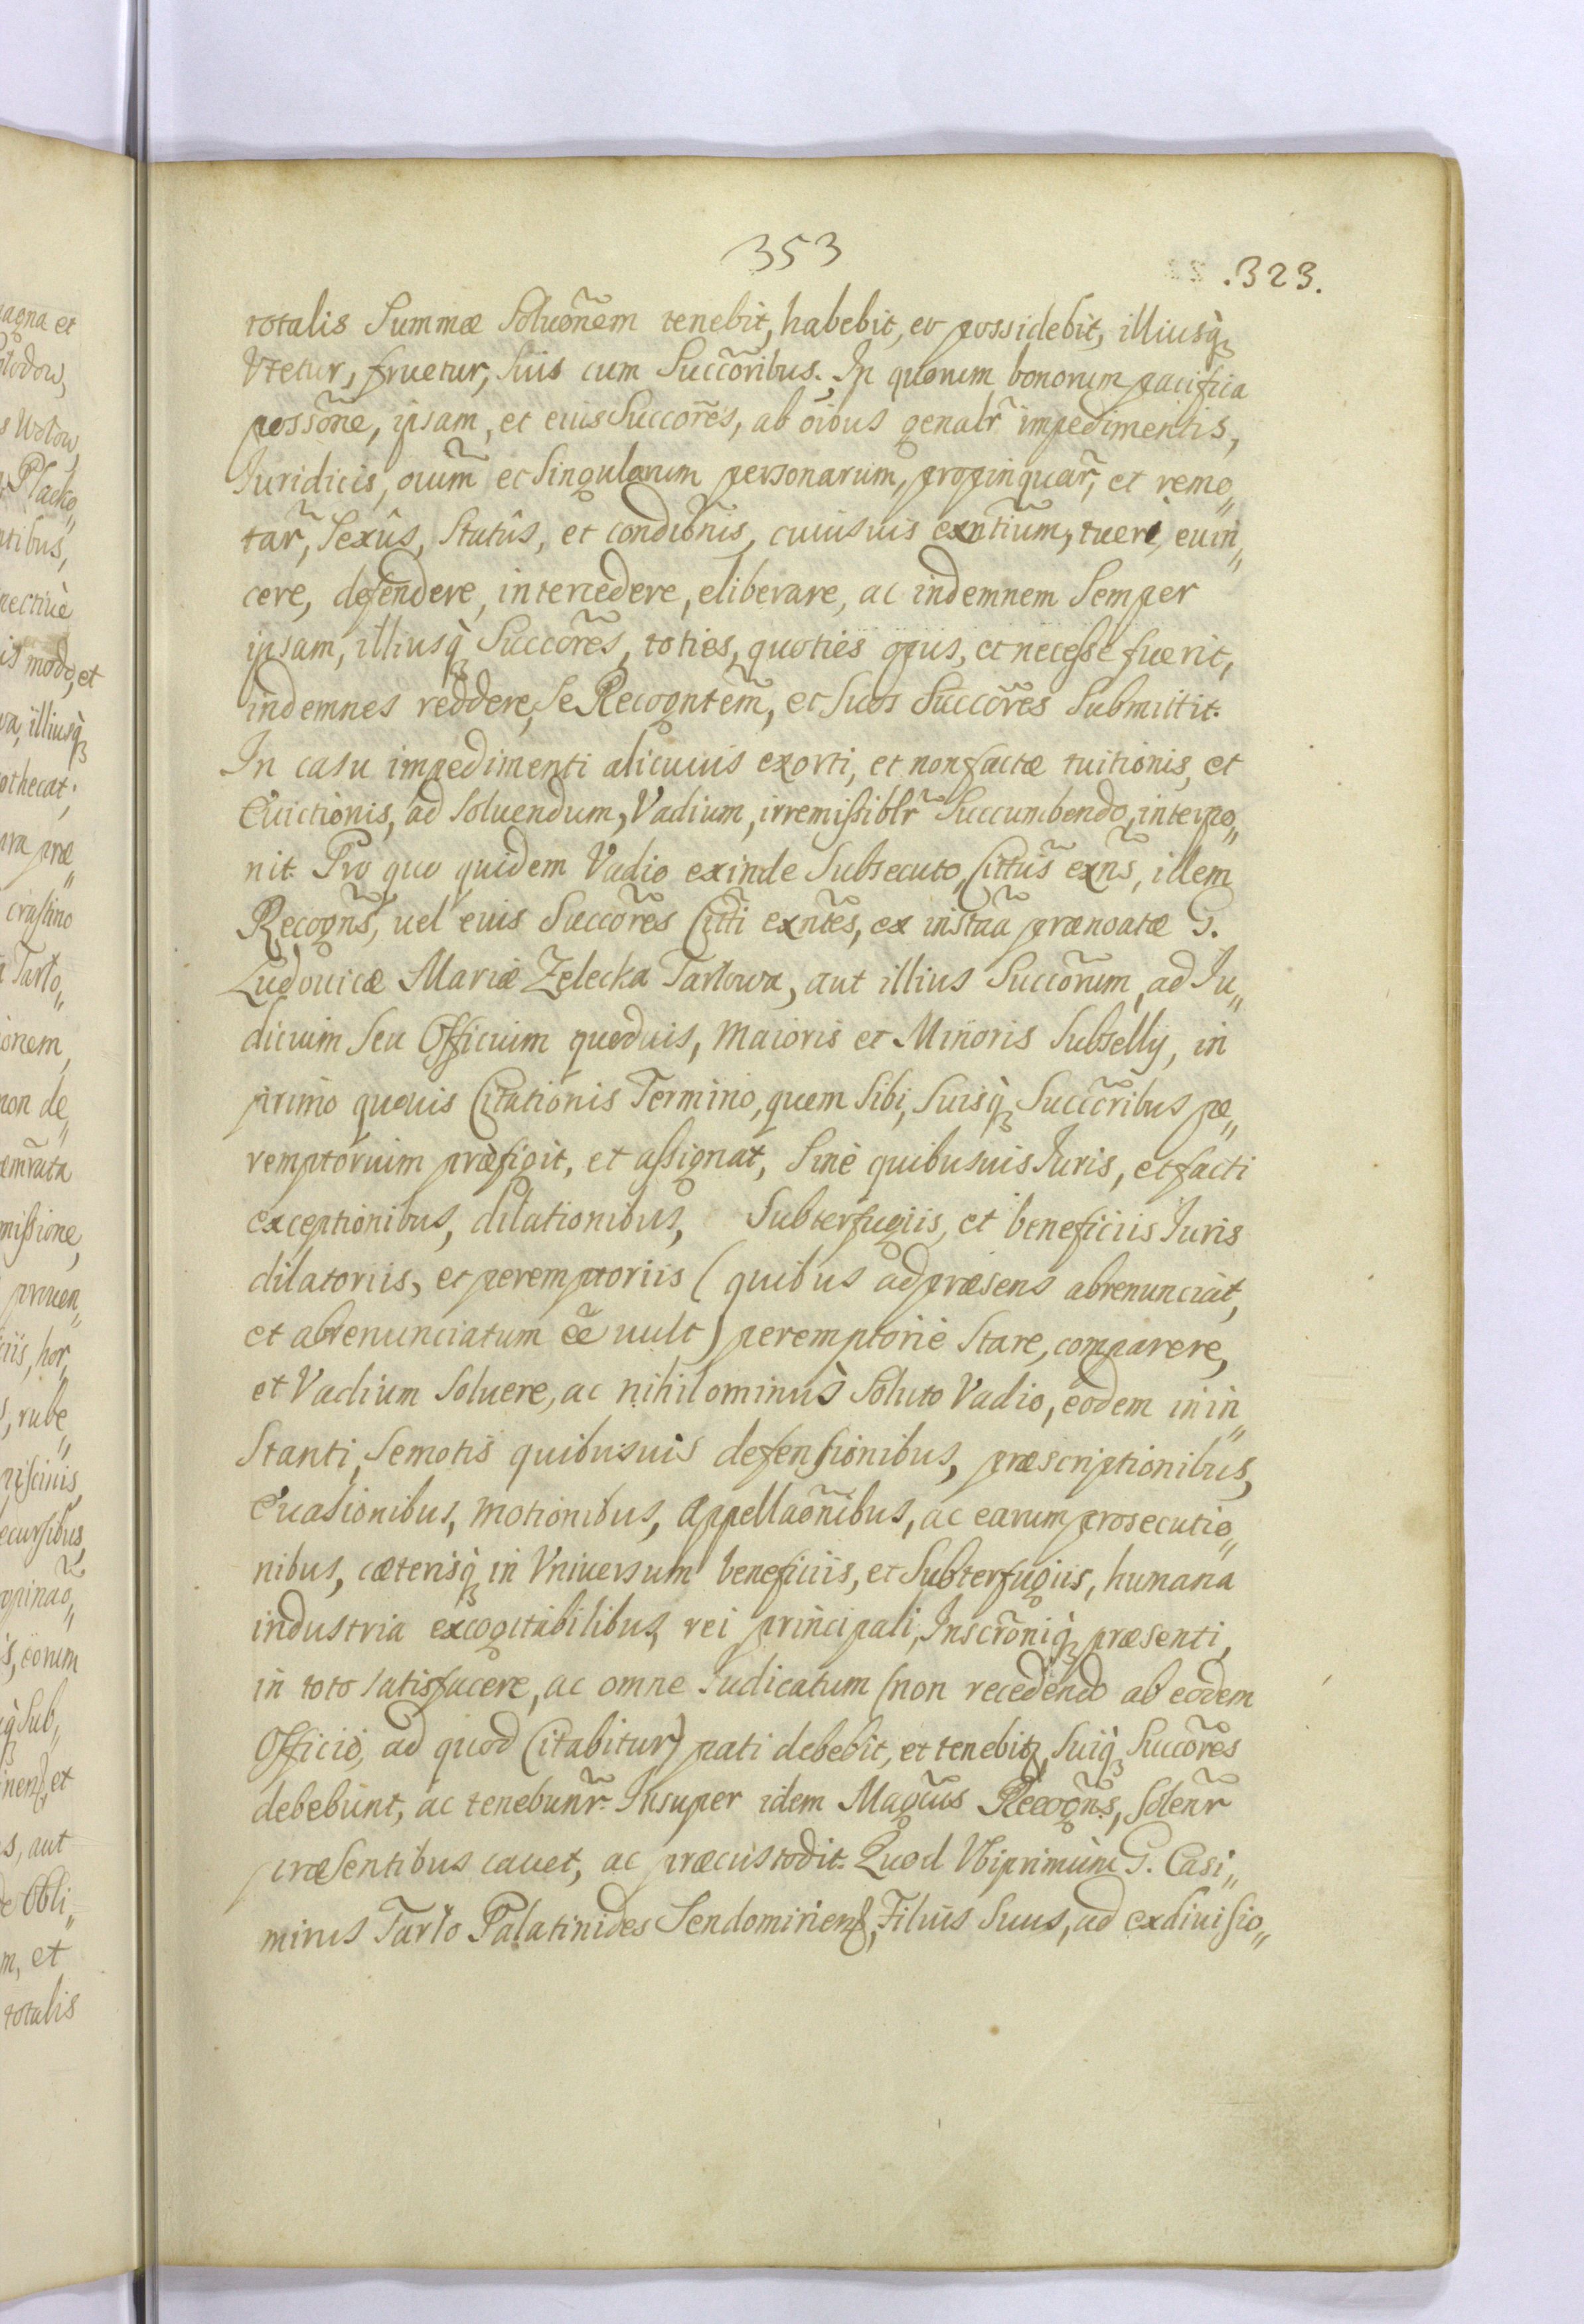 353
.323.
totalis Summæ Soluõnem tenebit, habebit, et possidebit, illiusq̀
Vtetur, fruetur, Suis cum Succõribus. In quorum bonorum pacifica
possõne, ipsam, et eius Succores̃, ab oĩbus genalr̃ impedimentis,
Iuridicis, oium̃ et Singularum personarum, propinquar̃, et remo„
tar̃, Sexûs, Statûs, et condiõnis, cuiusuis exñtium, tueri, euin„
cere, defendere, intercedere, eliberare, ac indemnem Semper
ipsam, illiusq̀ Succores̃, toties, quoties opus, et necesse fuerit,
indemnes reddere, Se Recogntem̃, et Suos Succores̃ Submittit.
In casu impedimenti alicuius exorti, et non factæ tuitionis, et
Euictionis, ad Soluendum, Vadium, irremissiblr̃ Succumbendo, interpo„
nit. Pro quo quidem Vadio exinde Subsecuto, Cittus̃ exns̃, idem
Recogns̃, uel eius Succores̃ Citti exntes̃, ex instãa prænoatæ G.
Ludouicæ Mariæ Zelecka Tarłowa, aut illius Succorum̃, ad Iu„
dicium Seu Officium quoduis, Maioris et Minoris Subsellij, in
primo quouis Citationis Termino, quem Sibi, Suisq̀ Succõribus pe„
remptorium præfigit, et assignat, Sine quibusuis Iuris, et facti
exceptionibus, dilationibus, Subterfugiis, et beneficiis Iuris
dilatoriis, et peremptoriis (quibus ad præsens abrenunciat,
et abrenunciatum ẽe uult) peremptorie Stare, comparere,
et Vadium Soluere, ac nihilominus Soluto Vadio, eodem in in„
Stanti, Semotis quibusuis defensionibus, præscriptionibus,
Euasionibus, motionibus, appellaõnibus, ac earum prosecutio„
nibus, cæterisq̀ in Vniuersum beneficiis, et Subterfugiis, humana
industria excogitabilibus, rei principali, Inscrõniq̀ præsenti,
in toto satisfacere, ac omne Iudicatum (non recedendo ab eodem
Officio, ad quod Citabitur) pati debebit, et tenebitr, Suiq̀ Succores̃
debebunt, ac tenebunr̃. Insuper idem Magcus̃ Recogns̃, Solenr̃
præsentibus cauet, ac præcustodit. Quod Vbiprimum G. Casi„
mirus Tarło Palatinides Sendomiriens, Filius Suus, ad exdiuisio„